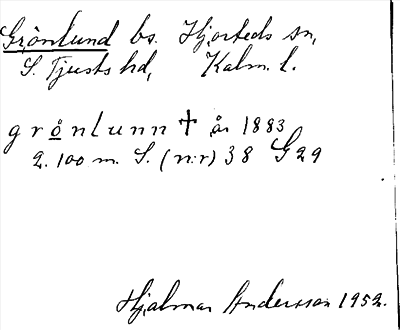 Grönlund bs. Hjorteds sn,
S. Tjusts hd, Kalm. l.
grö̀nlunn † år 1883
2. 100 m. S. (n:r) 38 G29
Hjalmar Andersson 1952.